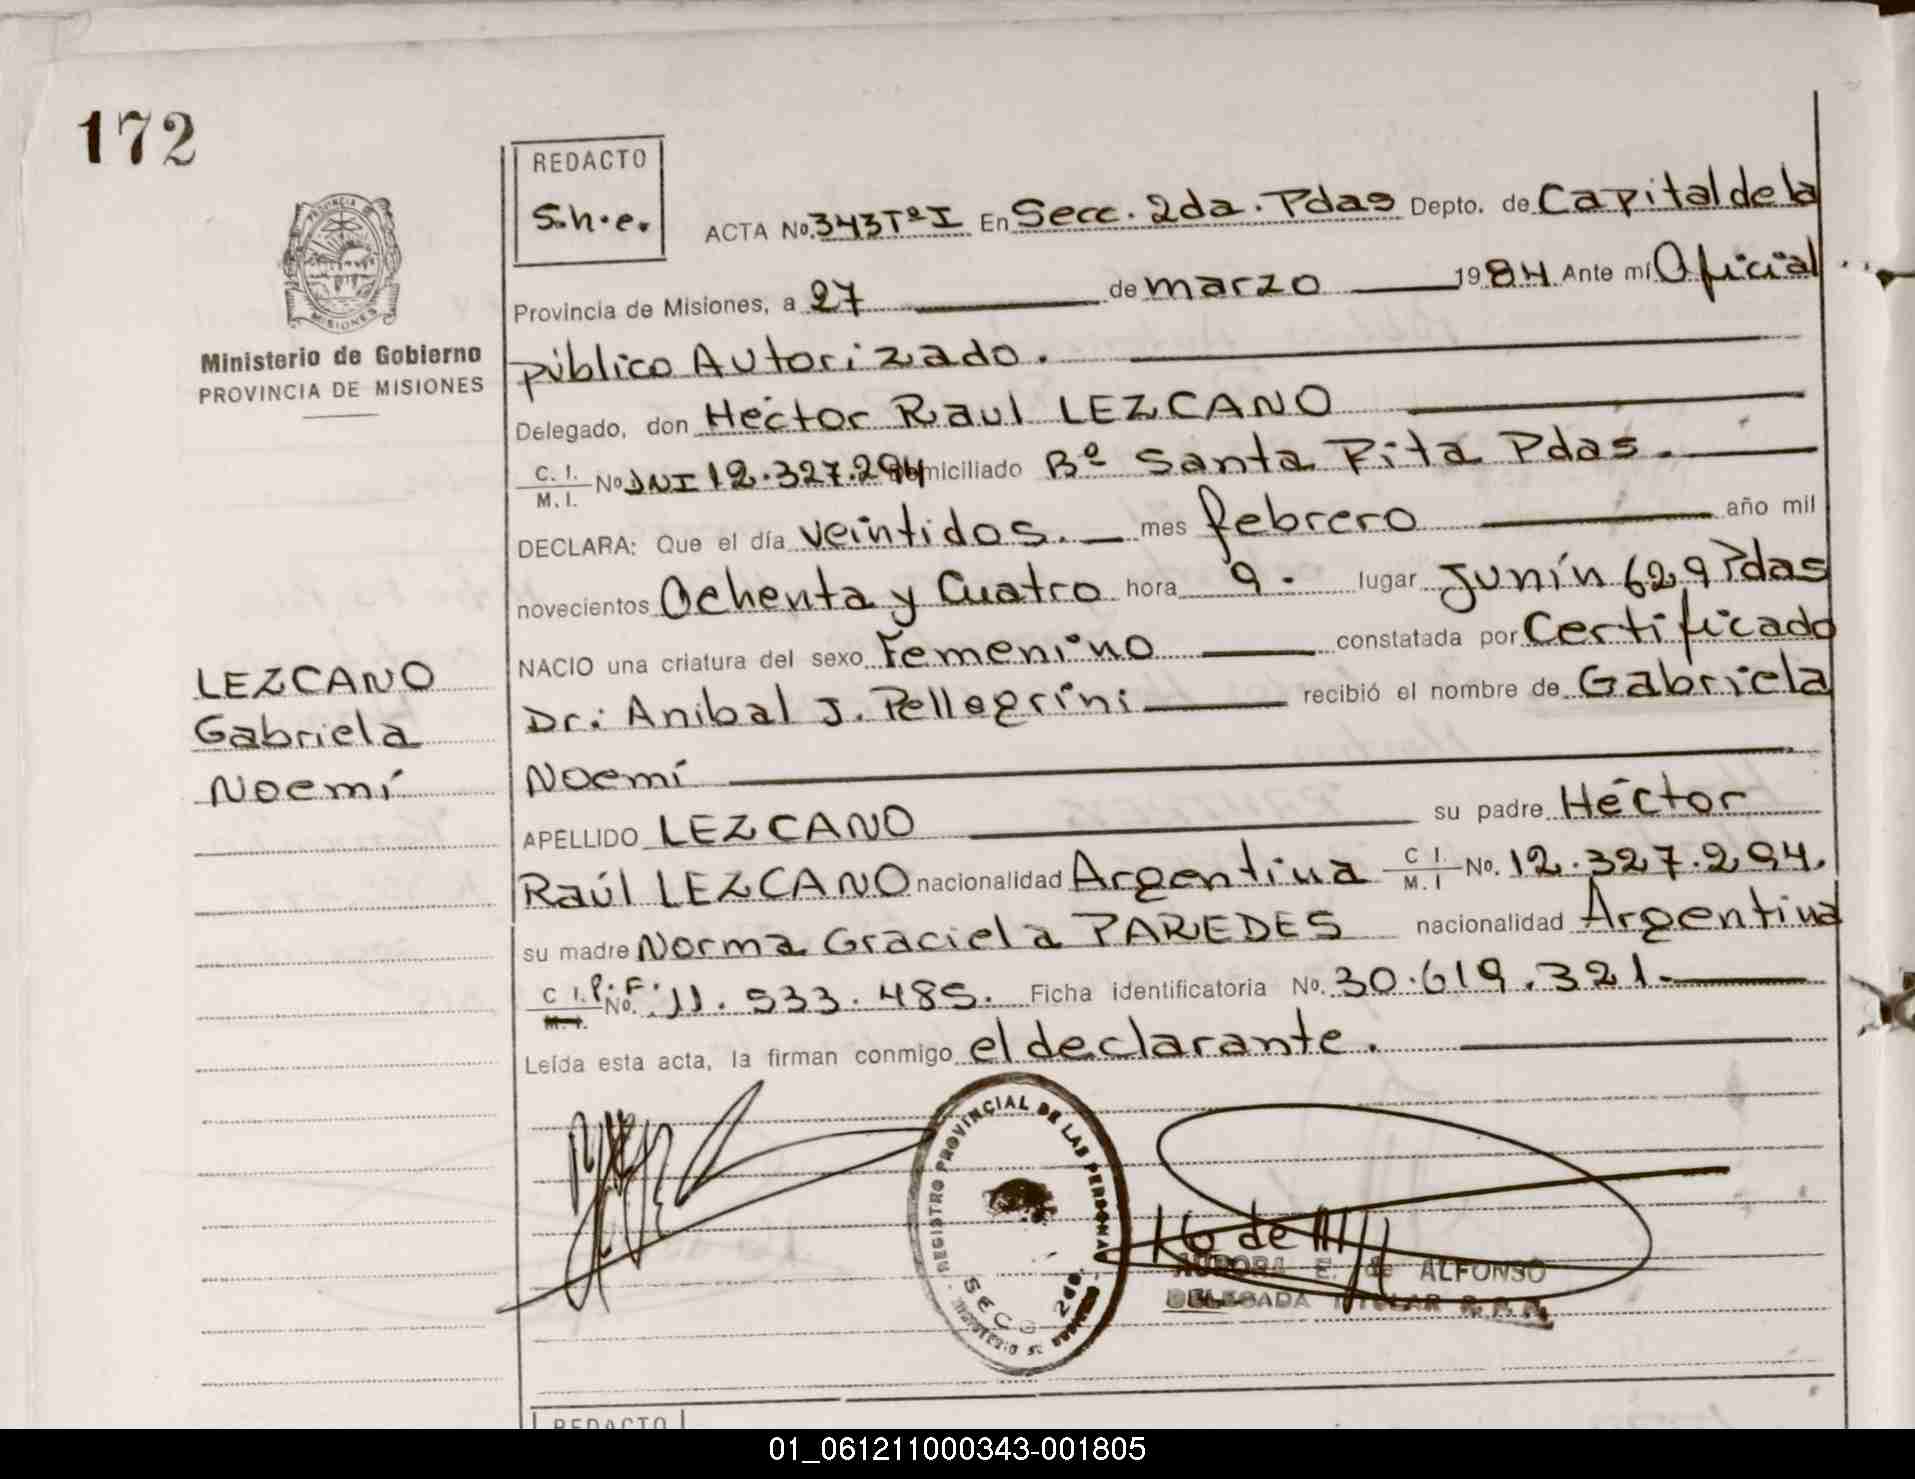 172
REDACTO
S.h.e.
ACTA No. 343 Tº I En Secc. 2da. Pdas Depto. de Capital de la
Provincia de Misiones, a 27 de marzo 1984 Ante mí Oficial
público Autorizado.
Delegado, don Héctor Raul LEZCANO
C. I. M. I. No DNI 12.327.294 domiciliado Bº Santa Rita Pdas.
DECLARA: Que el día veintidos. mes febrero año mil
novecientos Ochenta y Cuatro hora 9. lugar Junín 629 Pdas
NACIO una criatura del sexo Femenino constatada por Certificado
Dr: Anibal J. Pellegrini recibió el nombre de Gabriela
Noemí
APELLIDO LEZCANO su padre Héctor
Raúl LEZCANO nacionalidad Argentina C I. M. I No. 12.327.294.
su madre Norma Graciela PAREDES nacionalidad Argentina
C I. M. I. P.F. No. 11.533.485. Ficha identificatoria No. 30.619.321.
Leída esta acta, la firman conmigo el declarante.
PROVINCIA DE
MISIONES
Ministerio de Gobierno
PROVINCIA DE MISIONES
LEZCANO
Gabriela
Noemí
REGISTRO PROVINCIAL DE LAS PERSONAS
SECC 2da.
MINISTERIO DE GOBIERNO
AURORA E. de ALFONSO
DELEGADA TITULAR R. P. P.
REDACTO
01_061211000343-001805